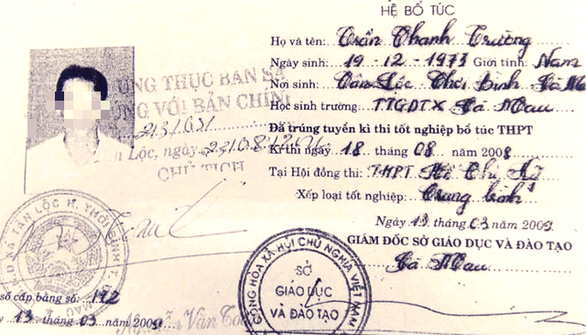 HỆ BỔ TÚC
Họ và tên: Trần Thanh Trường
Ngày sinh: 19-12-1973 Giới tính: Nam
Nơi sinh: Tân Lộc Thới Bình Cà Mau
Học sinh trường: TTGDTX Cà Mau
Đã trúng tuyển kì thi tốt nghiệp bổ túc THPT
Kì thi ngày 18 tháng 08 năm 2008
Tại Hội đồng thi: THPT Hồ Thị Kỷ
Xếp loại tốt nghiệp: Trung bình
Ngày 13 tháng 03 năm 2009
GIÁM ĐỐC SỞ GIÁO DỤC VÀ ĐÀO TẠO
Cà Mau
CHỨNG THỰC BẢN SAO
ĐÚNG VỚI BẢN CHÍNH
Lộc, ngày
CHỦ TỊCH
số cấp bằng số: 142
13 03 năm 2009
Nguyễn Văn
CỘNG HÒA XÃ HỘI CHỦ NGHĨA VIỆT NAM
SỞ
GIÁO DỤC
VÀ ĐÀO TẠO
XÃ TÂN LỘC H. THỚI BÌNH